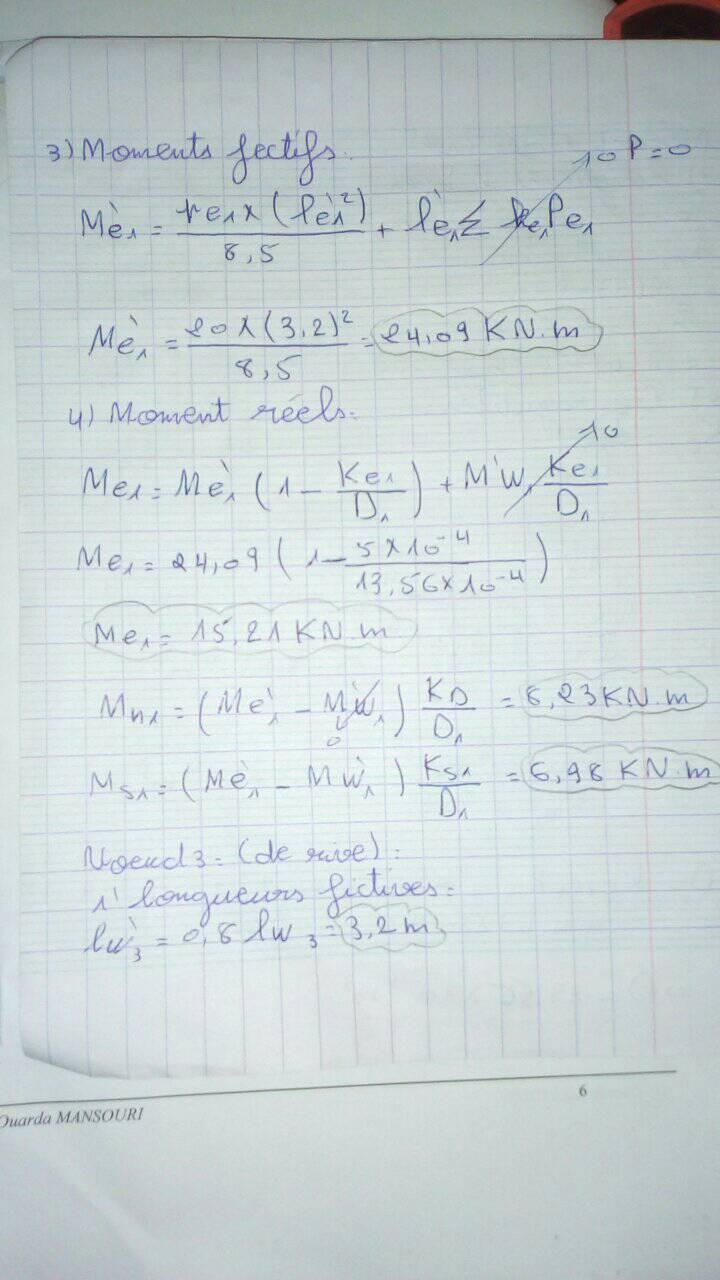 3) Moments fectifs.
M'e₁ = re₁ x (l'e₁²) / 8,5 + l'e₁ Σ ke₁ Pe₁ → 0 P = 0
M'e₁ = 20 x (3,2)² / 8,5 = 24,09 KN.m
4) Moment réels:
Me₁ = M'e₁ (1 - Ke₁ / D₁) + M'w₁ Ke₁ / D₁ → 0
Me₁ = 24,09 (1 - 5 x 10⁻⁴ / 13,56 x 10⁻⁴)
Me₁ = 15,21 KN.m
Mn₁ = (M'e₁ - M'w₁) KD / D₁ = 8,23 KN.m
0
Ms₁ = (M'e₁ - M'w₁) Ks₁ / D₁ = 6,98 KN.m
Noeud 3: (de rive):
1' longueurs fictives:
l'w₃ = 0,8 lw₃ = 3,2 m
6
Ouarda MANSOURI